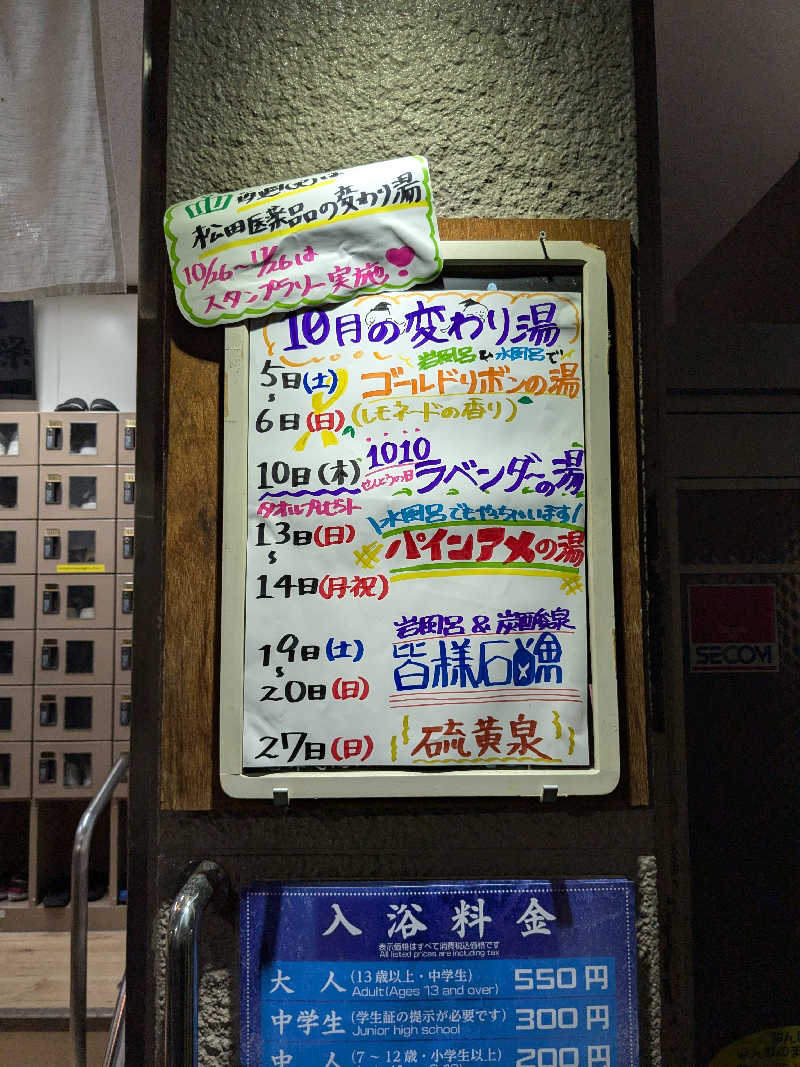 松田医薬品の変わり湯
10/26~11/26は
スタンプラリー実施!
10月の変わり湯
岩風呂&水風呂で
5日(土)
~
6日(日)
ゴールドリボンの湯
(レモネードの香り)
10日(木)
1010
せんとうの日
ラベンダーの湯
タオルプレゼント
13日(日)
~
14日(月祝)
\水風呂でもやっちゃいます/
パインアメの湯
岩風呂&炭酸泉
19日(土)
~
20日(日)
皆様石鹸
27日(日)
硫黄泉
SECOM
入浴料金
表示価格はすべて消費税込価格です
All listed prices are including tax
大人(13歳以上・中学生) 550円
Adult(Ages 13 and over)
中学生(学生証の提示が必要です) 300円
Junior high school
中人(7~12歳・小学生以上) 200円